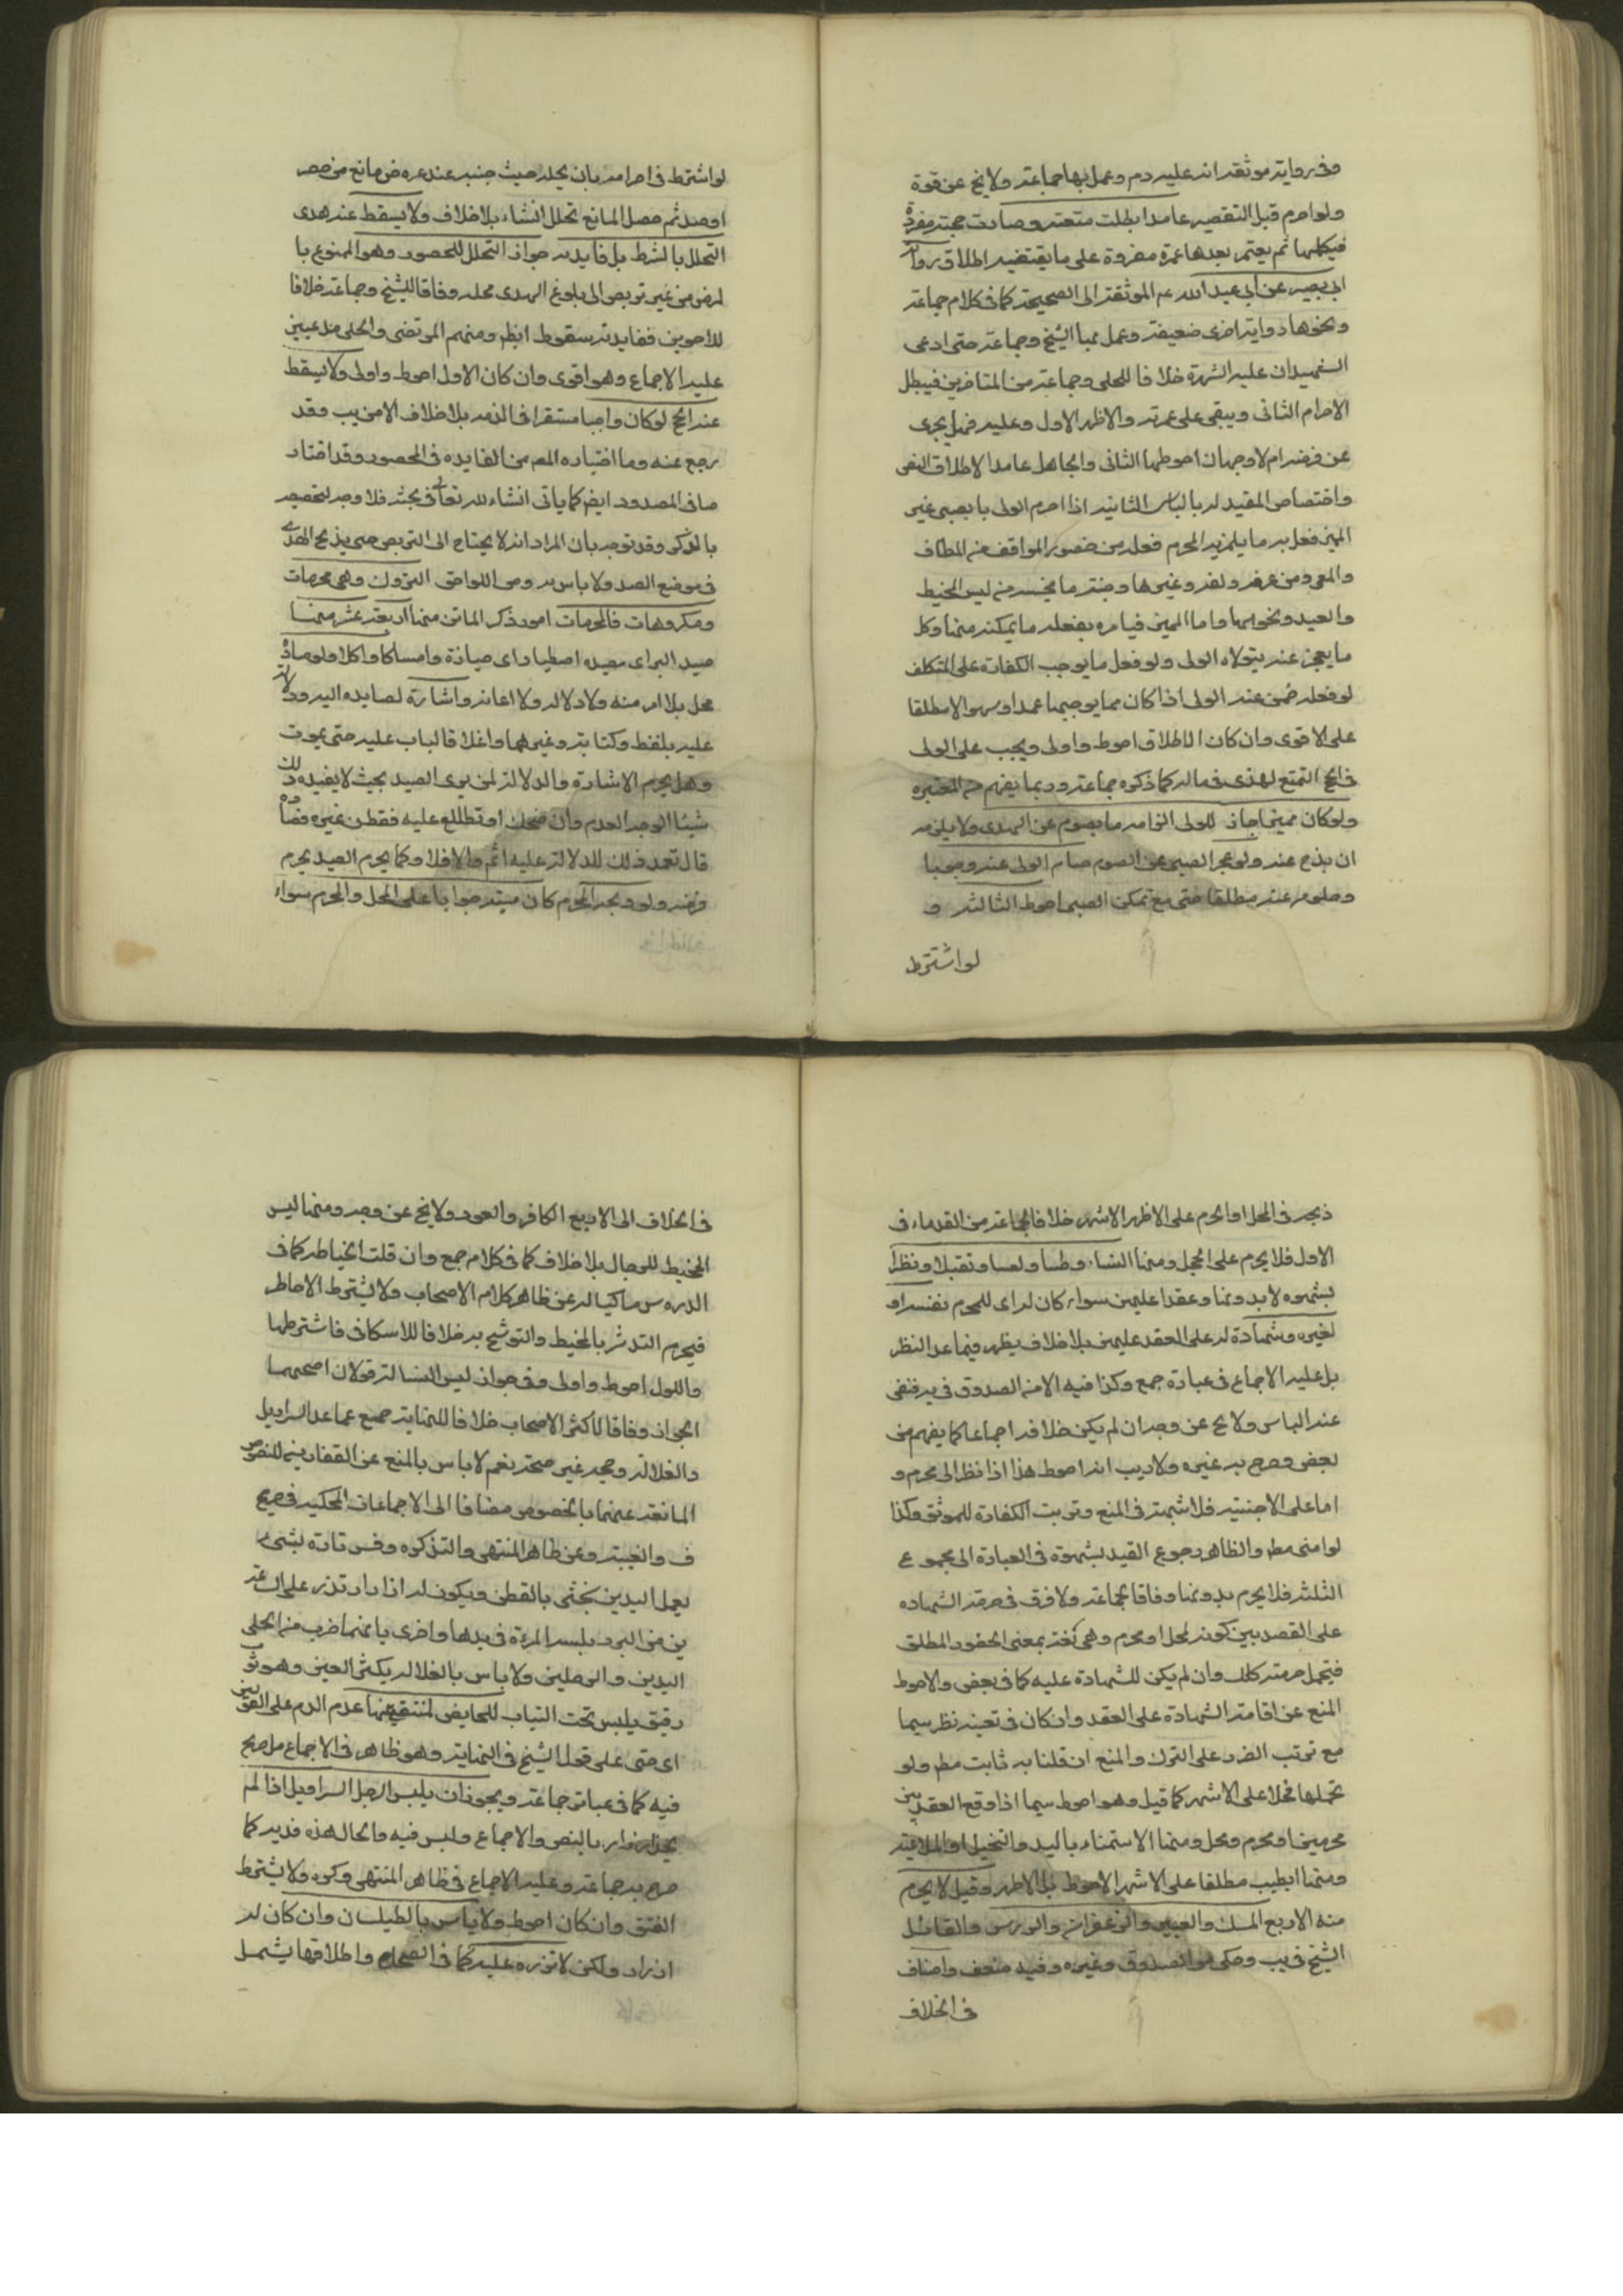 وفى رواية موثقة انه عليه دم وعمل بها جماعة ولا يخ عن قوة
ولو احرم قبل التقصير عامدا بطلت متعته وصارت حجته مفردة
فيكملها ثم يعتمر بعدها عمرة مفردة على ما يقتضيه اطلاق رواية
ابى بصير عن ابى عبد الله عم الموثقة الى الصحيحة كما فى كلام جماعة
ونحوها رواية اخرى ضعيفة وعمل بها الشيخ وجماعة حتى ادعى
الشهيدان عليه الشهرة خلافا للحلى وجماعة من المتاخرين فيبطل
الاحرام الثانى ويبقى على عمرته والاظهر الاول وعليه فهل يجزى
عن فرضه ام لا وجهان احوطهما الثانى والجاهل عامد الاطلاق النص
واختصاص المقيد له بالناسى الثانية اذا احرم الولى بالصبى غير
المميز فعل به ما يلزم المحرم فعله من حضور المواقف من المطاف
والمعى ومن عرفه وغيرها وجنبه ما يجتنبه من لبس المخيط
والصيد ونحوهما واما المميز فيامره بفعله ما يمكنه منها وكل
ما يعجز عنه يتولاه الولى ولو فعل ما يوجب الكفارة على المكلف
لو فعله ضمن عنه الولى اذا كان مما يوجبها عمدا وسهوا لا مطلقا
على الاقوى وان كان الاطلاق احوط واولى ويجب على الولى
فى الحج التمتع الهدى فى ماله كما ذكره جماعة وربما يفهم من المعتبرة
ولو كان مميزا جاز للولى الزامه بالصوم عن الهدى ولا يلزمه
ان يذبح عنه ولو عجز الصبى عن الصوم صام الولى عنه وجوبا
وصومه عنه مطلقا حتى مع تمكن الصبى احوط الثالثة و
لو اشترط
لو اشترط فى احرامه بان يحله حيث حبسه عند عروض مانع من حصر
او صد ثم حصل المانع تحلل انشاء بلا خلاف ولا يسقط عنه هدى
التحلل بالشرط بل فايدته جواز التحلل للمحصور وهو الممنوع با
لمرض من غير تربص الى بلوغ الهدى محله وفاقا للشيخ وجماعة خلافا
للاخرين ففايدته سقوط ايظ ومنهم المرتضى والحلى مدعيين
عليه الاجماع وهو اقوى وان كان الاول احوط واولى ولا يسقط
عنه الحج لو كان واجبا مستقرا فى الذمه بلا خلاف الا من يب وقد
رجع عنه وما اختاره المص من الفايده فى المحصور وقد اختار
ها فى المصدود ايض كما ياتى انشاء لله تعالى فى بحثه فلا وجه لتخصيصه
بالذكر وقد توجه بان المراد انه لا يحتاج الى التربص حتى يذبح الهدى
فى موضع الصد ولا باس به ومن اللواحق التروك وهى محرمات
ومكروهات فالمحرمات امور ذكر الماتن منها اربعة عشر منها
صيد البر اى مصيده اصطيادا اى حيازة وامساكا واكلا ولو صاده
محل بلا امر منه ولا دلالة ولا اعانة واشارة لصايده اليه ودلالة
عليه بلفظ وكتابة وغيرهما واغلاقا لباب عليه حتى يموت
وهل يحرم الاشارة والدلالة لمن يرى الصيد بحيث لا يفيده ذلك
شيئا الوجه العدم وان ضحك او تطلع عليه فقطن غيره فصاده
قال تعمد ذلك للدلالة عليه اثم والا فلا وكما يحرم الصيد يحرم
فرخه ولو وجد المحرم كان ميتة حراما على المحل والمحرم سواء
ذبحه فى المحل او الحرم على الاظهر الاشهر خلافا لجماعة من القدماء فى
الاول فلا يحرم على المحل ومنها النساء وطئا ولمسا وتقبيلا ونظرا
بشهوه لا بدونها وعقدا عليهن سواء كان له اى للمحرم نفسه او
لغيره وشهادة له على العقد عليهن بلا خلاف يظهر فيما عدا النظر
بل عليه الاجماع فى عبارة جمع وكذا فيه الا من الصدوق فى يه فنفى
عنه الباس ولا يخ عن وجه ان لم يكن خلافه اجماعا كما يفهم من
بعض وصرح به غيره ولا ريب انه احوط هذا اذا نظر الى محرم و
اما على الاجنبية فلا شبهة فى المنع وترتب الكفارة للموثق وكذا
لو امنى مط والظاهر رجوع القيد بشهوة فى العبارة الى مجموع
الثلثة فلا يحرم بدونها وفاقا لجماعة ولا فرق فى حرمة الشهاده
على القصد بين كونه لمحل او محرم وهى لغة بمعنى الحضور المطلق
فتحمل حرمته كذلك وان لم يكن للشهادة عليه كما فى بعض والاحوط
المنع عن اقامة الشهادة على العقد وان كان فى تعينه نظر سيما
مع ترتب الضرر على الترك والمنع ان قلنا به ثابت مط ولو
تحملها محلا على الاشهر كما قيل وهو احوط سيما اذا وقع العقد بين
محرمين او محرم ومحل ومنها الاستمناء باليد والتخييل او الملاعبة
ومنها الطيب مطلقا على الاشهر الاحوط بل الاظهر وقيل لا يحرم
منه الا اربع المسك والعنبر والزعفران والورس والقائل
الشيخ فى يب وحكى عن الصدوق وغيره وفيه ضعف واضاف
فى الخلاف
فى الخلاف الى الاربع الكافور والعود ولا يخ عن وجه ومنها لبس
المخيط للرجال بلا خلاف كما فى كلام جمع وان قلت الخياطة كما فى
الدروس حاكيا له عن ظاهر كلام الاصحاب ولا يشترط الاحاطه
فيحرم التدثر بالمخيط والتوشح به خلافا للاسكافى فاشترطها
والاول احوط واولى وفى جواز لبس النساء له قولان اصحهما
الجواز وفاقا لاكثر الاصحاب خلافا للنهاية جميع ما عدا السراويل
والغلالة وحجته غير صحته نعم لا باس بالمنع عن القفازين للنصوص
المانعة عنهما بالخصوص مضافا الى الاجماعات المحكية فى صريح
ف والغنية وعن ظاهر المنتهى والتذكره وفسر تارة بشىء
يعمل لليدين يحشى بالقطن ويكون له ازرار تزر على الساعد
ين من البرد يلبسه المراة فى يديها واخرى بانهما ضرب من الحلى
لليدين والرجلين ولا باس بالغلاله بكسر الغين وهو ثوب
رقيق يلبس تحت الثياب للحايض لتتقى بها عدم الدم على القولين
اى حتى على قول الشيخ فى النهاية وهو ظاهر فى الاجماع مصرح
فيه كما فى عباير جماعة ويجوز ان يلبس الرجل السراويل اذا لم
يجد ازار بالنص والاجماع وليس فيه والحال هذه فديه كما
صرح به جماعة وعليه الاجماع فى ظاهر المنتهى وكره ولا يشترط
الفتق وان كان احوط ولا باس بالطيلسان وان كان له
ازرار ولكن لا تزره عليه كما فى الصحاح واطلاقها يشمل